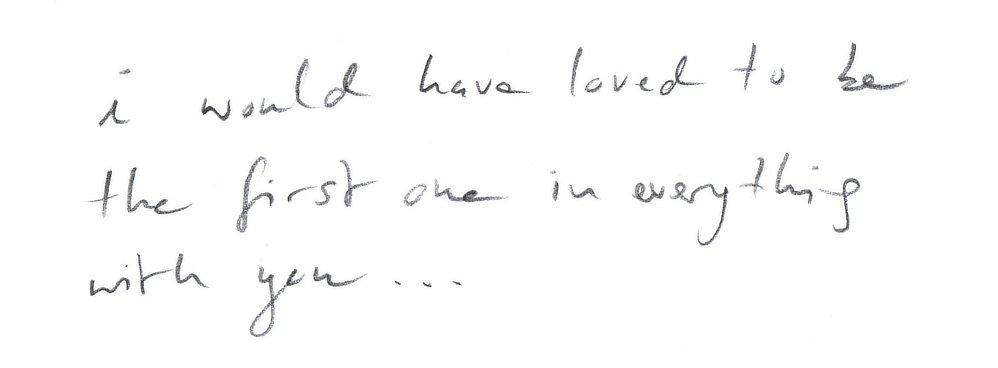 i would have loved to be
the first one in everything
with you ...